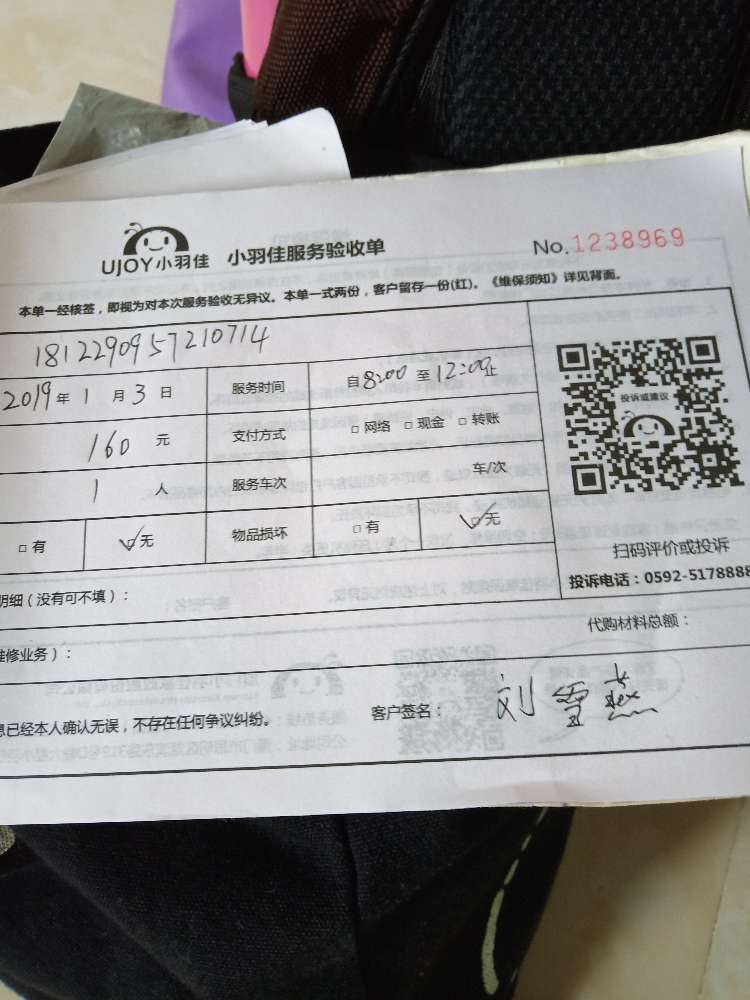 UJOY小羽佳 小羽佳服务验收单 No.1238969
本单一经核签，即视为对本次服务验收无异议。本单一式两份，客户留存一份(红)。《维保须知》详见背面。
1812290957210714
2019年1月3日 服务时间 自8:00至12:00止
160元 支付方式 □网络 □现金 □转账
投诉或建议
1人 服务车次 车/次
□有 ☑无 物品损坏 □有 ☑无
扫码评价或投诉
投诉电话：0592-5178888
明细（没有可不填）：
代购材料总额：
维修业务）：
息已经本人确认无误，不存在任何争议纠纷。 客户签名： 刘雪燕